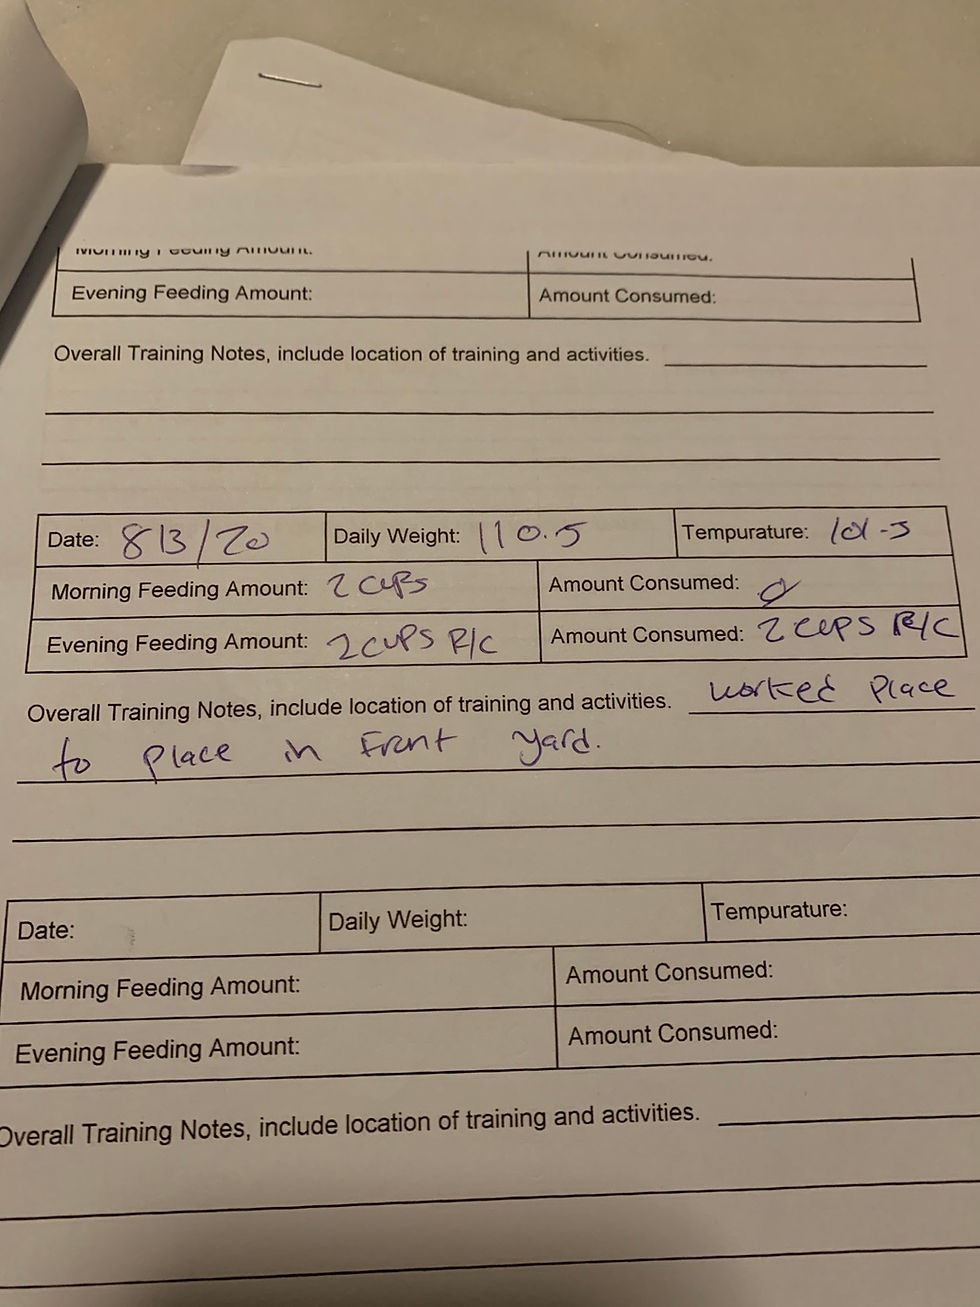 Morning Feeding Amount: Amount Consumed:
Evening Feeding Amount: Amount Consumed:
Overall Training Notes, include location of training and activities.
Date: 8/3/20 Daily Weight: 110.5 Tempurature: 101.5
Morning Feeding Amount: 2 cups Amount Consumed: 0
Evening Feeding Amount: 2 cups R/C Amount Consumed: 2 cups R/C
Overall Training Notes, include location of training and activities. worked Place
to place in Front yard.
Date: Daily Weight: Tempurature:
Morning Feeding Amount: Amount Consumed:
Evening Feeding Amount: Amount Consumed:
Overall Training Notes, include location of training and activities.